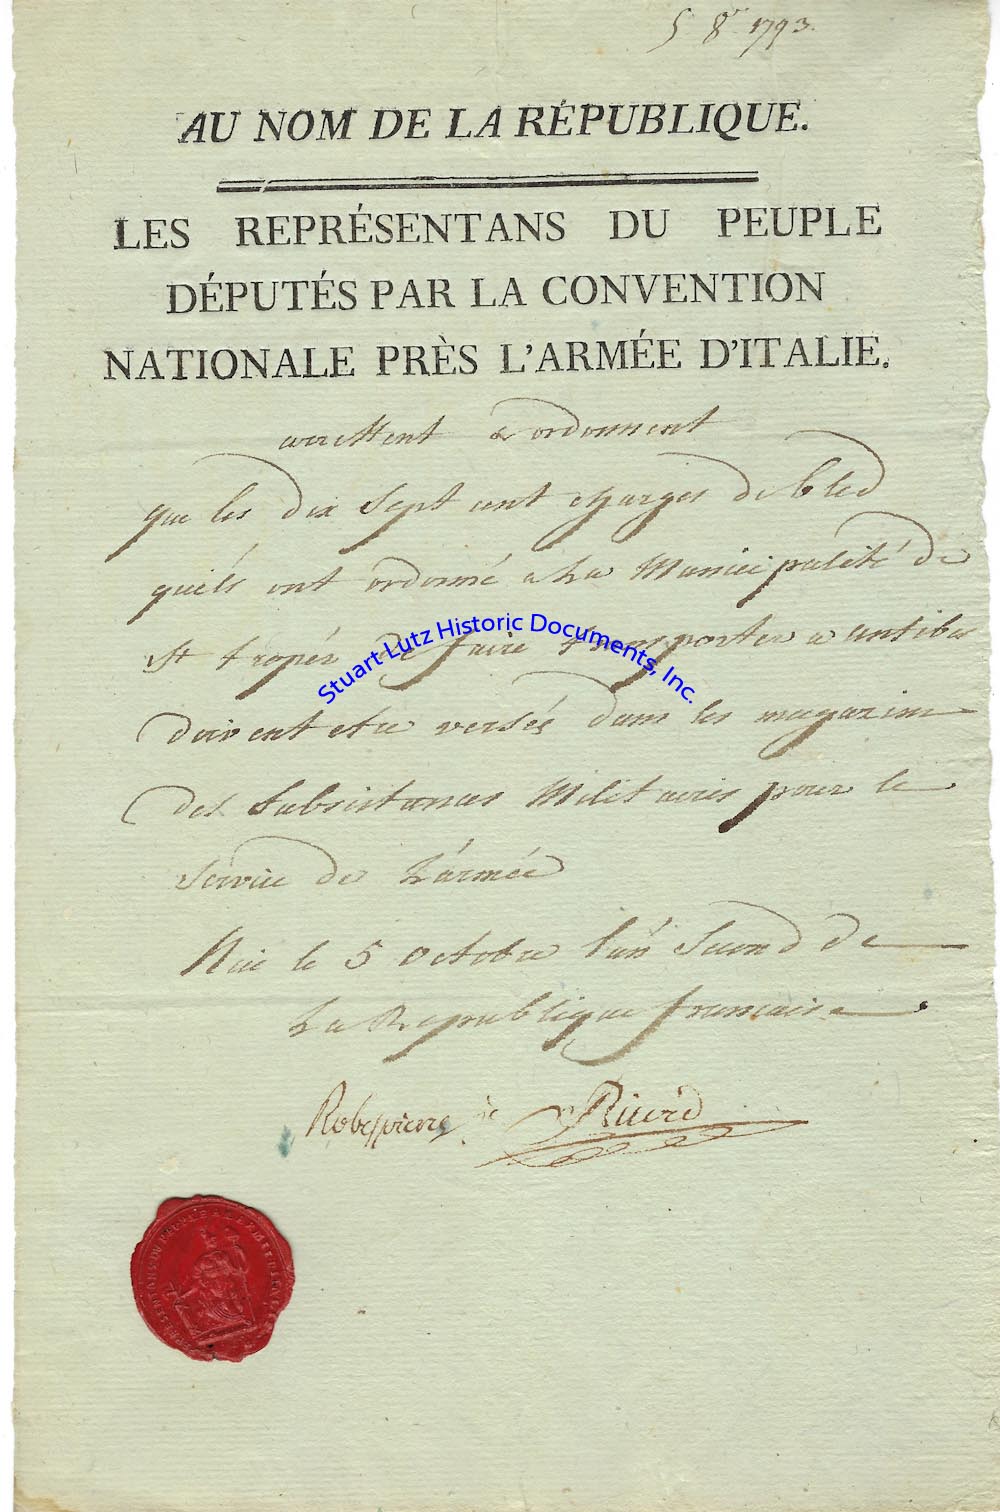 5 8r 1793.
AU NOM DE LA RÉPUBLIQUE.
LES REPRÉSENTANS DU PEUPLE
DÉPUTÉS PAR LA CONVENTION
NATIONALE PRÈS L'ARMÉE D'ITALIE.
arrettent & ordonnent
que les dix sept cent charges de bled
quils ont ordonné a La Municipalité de
St tropés de faire transporter a antibes
doivent etre versés dans les magazins
des Subsistances Militaires pour le
Service de L'armée
Nice le 5 Octobre l'an Second de
La Republique francaise
Robespierre je Ricord
Stuart Lutz Historic Documents, Inc.